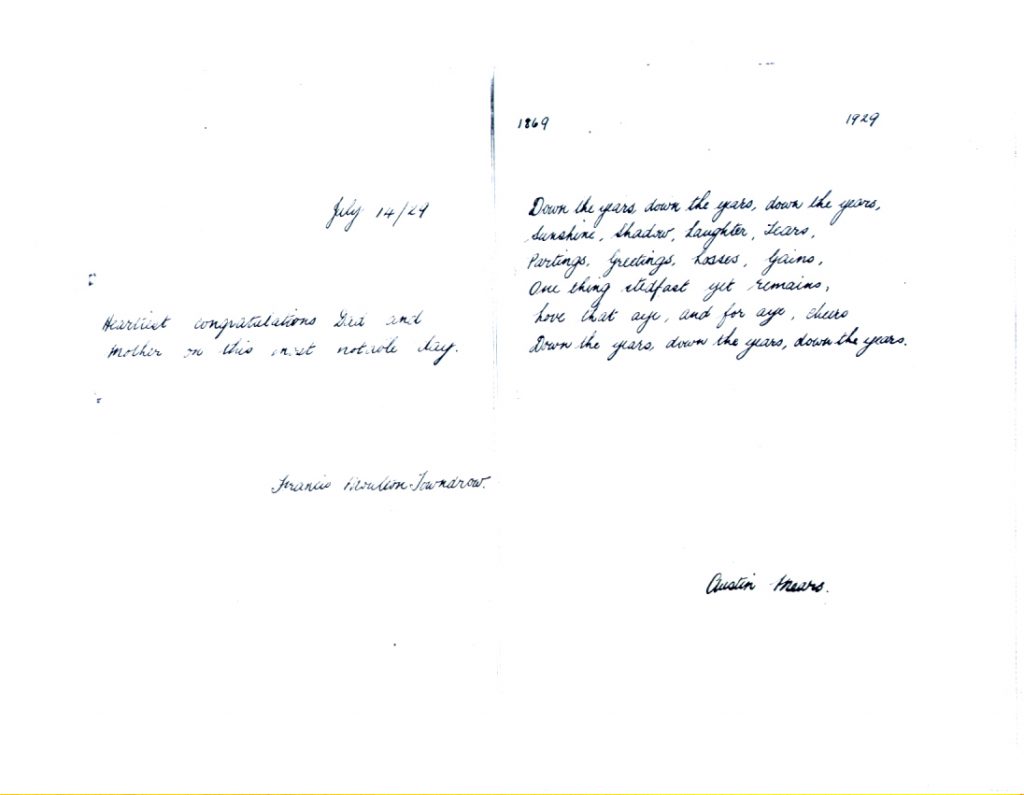 July 14/29
Heartiest congratulations Dad and
Mother on this most notable day.
Francis Moulton-Towndrow.
1869 1929
Down the years, down the years, down the years,
Sunshine, Shadow, Laughter, Tears,
Partings, Greetings, Losses, Gains,
One thing stedfast yet remains,
Love that aye, and for aye, cheers
Down the years, down the years, down the years.
Austin Mears.